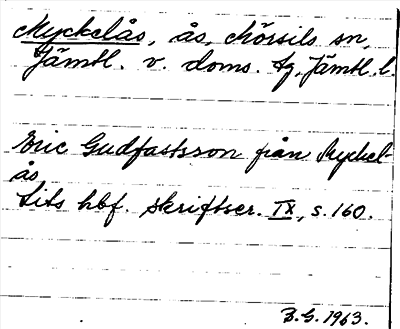 Myckelås, ås, Mörsils sn,
Jämtl. v. doms. tg, Jämtl. l.
Eric Gudfastsson från Myckel-
ås
Lits hbf. skriftser. IX, s. 160.
B.G. 1963.